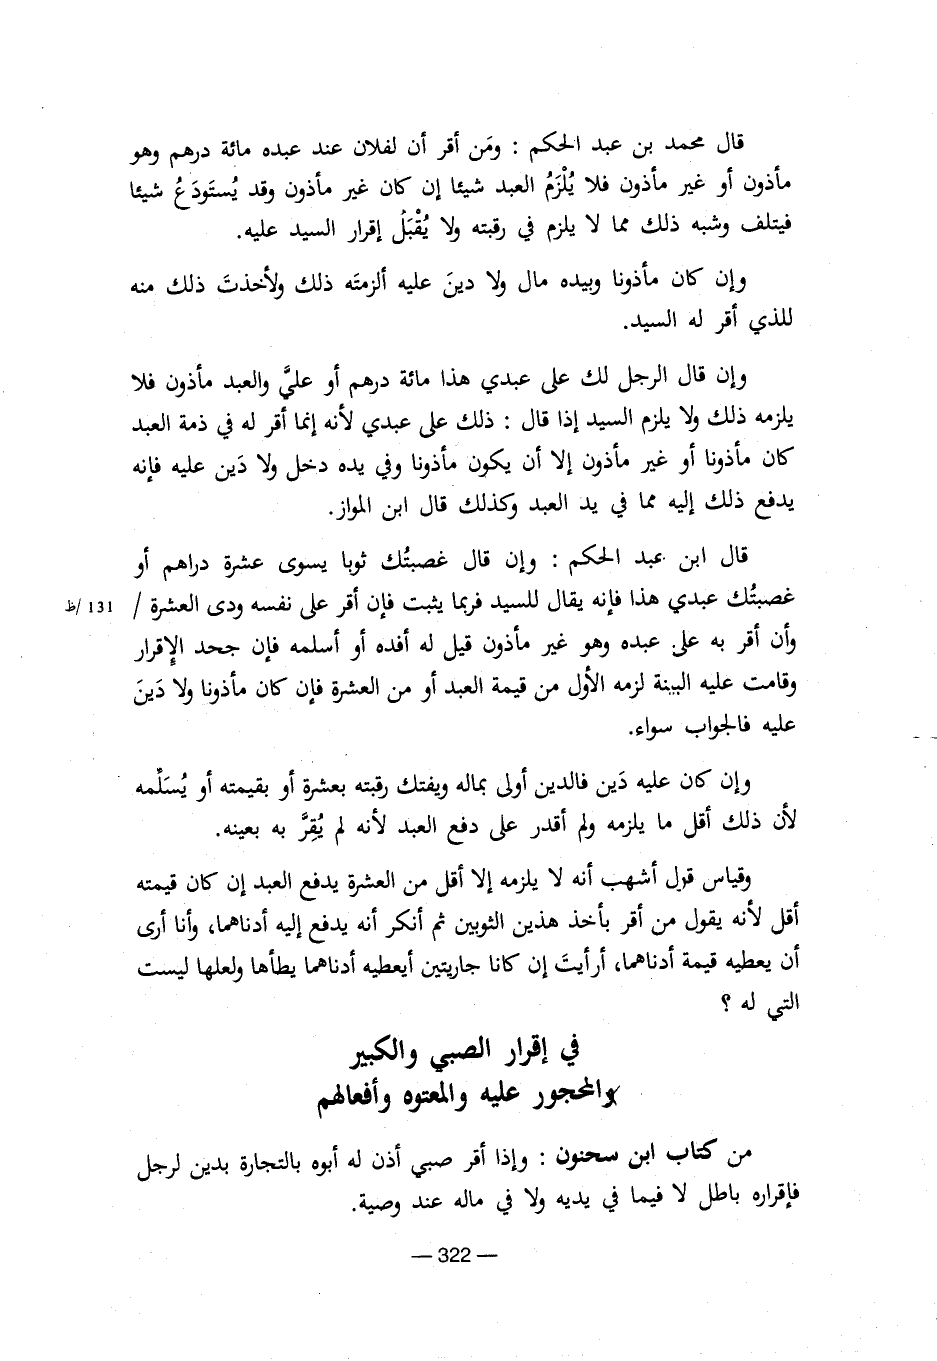 قال محمد بن عبد الحكم : ومَن أقر أن لفلان عند عبده مائة درهم وهو
مأذون أو غير مأذون فلا يُلْزَمُ العبد شيئا إن كان غير مأذون وقد يُستَودَعُ شيئا
فيتلف وشبه ذلك مما لا يلزم في رقبته ولا يُقْبَلُ إقرار السيد عليه.
وإن كان مأذونا وبيده مال ولا دينَ عليه ألزمتَه ذلك ولأخذتَ ذلك منه
للذي أقر له السيد.
وإن قال الرجل لك على عبدي هذا مائة درهم أو عليَّ والعبد مأذون فلا
يلزمه ذلك ولا يلزم السيد إذا قال : ذلك على عبدي لأنه إنما أقر له في ذمة العبد
كان مأذونا أو غير مأذون إلا أن يكون مأذونا وفي يده دخل ولا دَين عليه فإنه
يدفع ذلك إليه مما في يد العبد وكذلك قال ابن المواز.
قال ابن عبد الحكم : وإن قال غصبتُك ثوبا يسوى عشرة دراهم أو
غصبتُك عبدي هذا فإنه يقال للسيد فربما يثبت فإن أقر على نفسه ودى العشرة / 131 /ظ
وأن أقر به على عبده وهو غير مأذون قيل له أفده أو أسلمه فإن جحد الإقرار
وقامت عليه البينة لزمه الأول من قيمة العبد أو من العشرة فإن كان مأذونا ولا دَينَ
عليه فالجواب سواء.
وإن كان عليه دَين فالدين أولى بماله ويفتك رقبته بعشرة أو بقيمته أو يُسَلِّمه
لأن ذلك أقل ما يلزمه ولم أقدر على دفع العبد لأنه لم يُقِرَّ به بعينه.
وقياس قول أشهب أنه لا يلزمه إلا أقل من العشرة يدفع العبد إن كان قيمته
أقل لأنه يقول من أقر بأخذ هذين الثوبين ثم أنكر أنه يدفع إليه أدناهما، وأنا أرى
أن يعطيه قيمة أدناهما، أرأيتَ إن كانا جاريتين أيعطيه أدناهما يطأها ولعلها ليست
التي له ؟
في إقرار الصبي والكبير
والمحجور عليه والمعتوه وأفعالهم
من كتاب ابن سحنون : وإذا أقر صبي أذن له أبوه بالتجارة بدين لرجل
فإقراره باطل لا فيما في يديه ولا في ماله عند وصية.
— 322 —